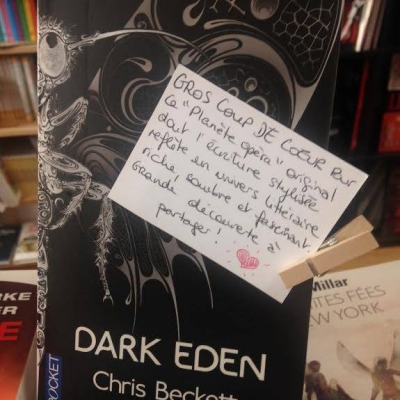 GROS COUP DE COEUR pour
ce "Planète opéra" original
dont l'écriture stylisée
reflète un univers littéraire
riche, sombre et fascinant
Grande découverte à
partager !
DARK EDEN
Chris Beckett
POCKET
RKE
ER
E
Millar
ITES FÉES
EW YORK